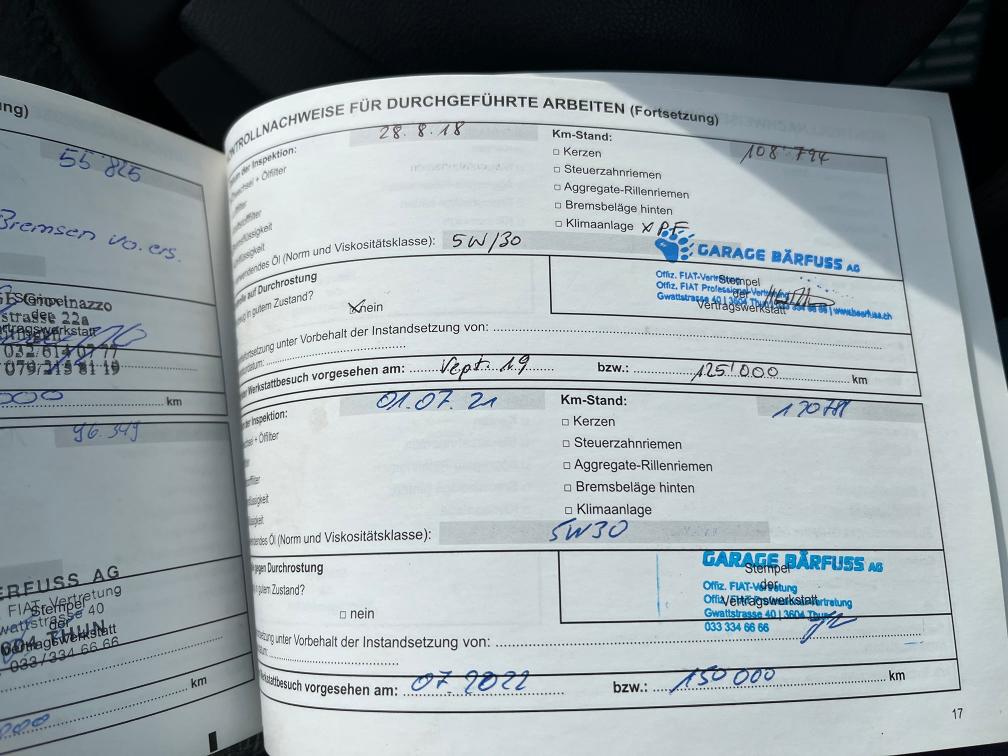 ng)
55 825
Bremsen vo. ers.
Giovinazzo
Stempel
der
strasse 22a
Vertragswerkstatt
032 614 07 77
079 215 81 19
000 km
96.349
BÄRFUSS AG
FIAT-Vertretung
Stempel
Gwattstrasse 40
der
Vertragswerkstatt
THUN
033/334 66 66
km
000
KONTROLLNACHWEISE FÜR DURCHGEFÜHRTE ARBEITEN (Fortsetzung)
der Inspektion: 28.8.18 Km-Stand: 108'794
wechsel + Ölfilter □ Kerzen
□ Steuerzahnriemen
□ Aggregate-Rillenriemen
□ Bremsbeläge hinten
□ Klimaanlage x P.F.
Öl (Norm und Viskositätsklasse): 5W/30
GARAGE BÄRFUSS AG
auf Durchrostung
Offiz. FIAT-Vertretung
Stempel
in gutem Zustand?
Offiz. FIAT Professional-Vertretung
der
x nein
Gwattstrasse 40 | 3604 Thun
www.baerfuss.ch
Vertragswerkstatt
unter Vorbehalt der Instandsetzung von:
Werkstattbesuch vorgesehen am: Sept. 19 bzw.: 125'000 km
Inspektion: 01.07.21 Km-Stand:
+ Ölfilter □ Kerzen
□ Steuerzahnriemen
□ Aggregate-Rillenriemen
□ Bremsbeläge hinten
□ Klimaanlage
Öl (Norm und Viskositätsklasse): 5W30
GARAGE BÄRFUSS AG
gegen Durchrostung
Stempel
Offiz. FIAT-Vertretung
gutem Zustand?
der
Vertragswerkstatt
□ nein
Gwattstrasse 40 | 3604 Thun
033 334 66 66
unter Vorbehalt der Instandsetzung von:
vorgesehen am: 07.2022 bzw.: 150 000 km
17